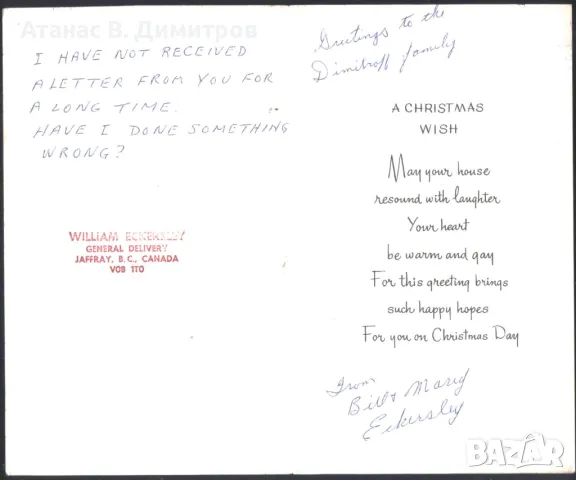 Атанас В. Димитров
I HAVE NOT RECEIVED
A LETTER FROM YOU FOR
A LONG TIME.
HAVE I DONE SOMETHING
WRONG?
WILLIAM ECKERSLEY
GENERAL DELIVERY
JAFFRAY, B.C., CANADA
V0B 1T0
Greetings to the
Dimitroff family
A CHRISTMAS
WISH
May your house
resound with laughter
Your heart
be warm and gay
For this greeting brings
such happy hopes
For you on Christmas Day
From
Bill & Mary
Eckersley
BAZAR